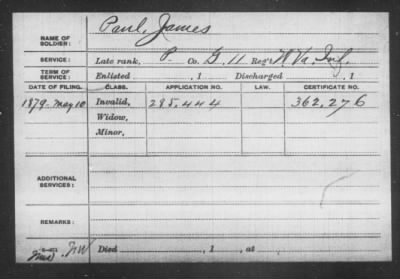 NAME OF SOLDIER: Paul, James
SERVICE: Late rank, P. Co. G, 11 Reg't W Va. Inf.
TERM OF SERVICE: Enlisted , 1 Discharged , 1
DATE OF FILING. CLASS. APPLICATION NO. LAW. CERTIFICATE NO.
1879-May 10 Invalid, 285,444 362,276
Widow,
Minor,
ADDITIONAL SERVICES:
REMARKS:
Died , 1 , at